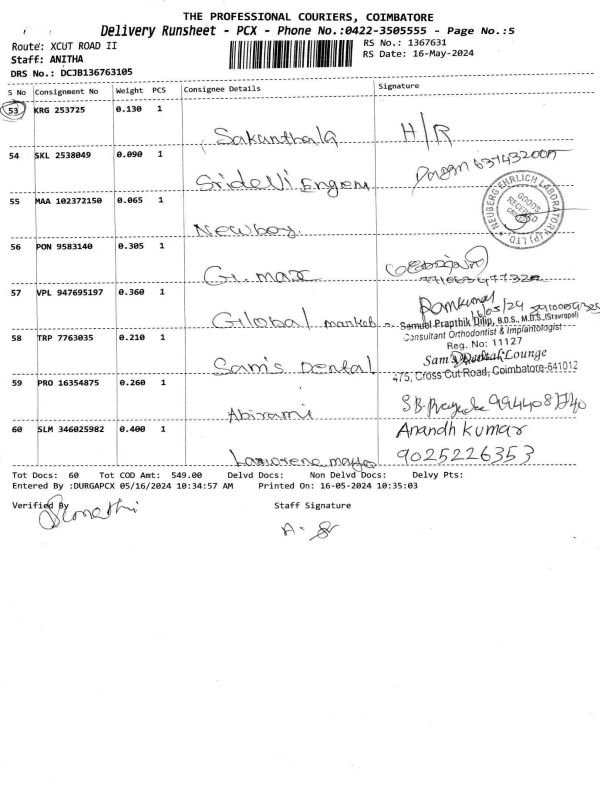 THE PROFESSIONAL COURIERS, COIMBATORE
Delivery Runsheet - PCX - Phone No.:0422-3505555 - Page No.:5
Route: XCUT ROAD II
RS No.: 1367631
Staff: ANITHA
RS Date: 16-May-2024
DRS No.: DCJB136763105
S No Consignment No Weight PCS Consignee Details Signature
53 KRG 253725 0.130 1
Sakunthala H/R
54 SKL 2538049 0.090 1
Sridevi Engem
55 MAA 102372150 0.065 1
NEUBERG EHRLICH LABORATORY (P) LTD
GOODS RECEIVED
Newboy.
56 PON 9583140 0.305 1
G. max
57 VPL 947695197 0.360 1
Ramkumar
16/05/24
Global market
Samuel Prapthik Dilip, B.D.S., M.D.S.,(Stavropol)
Consultant Orthodontist & Implantologist
58 TRP 7763035 0.210 1
Reg. No: 11127
Sam's Dental
Sam's Dental Lounge
475, Cross Cut Road, Coimbatore-641012
59 PRO 16354875 0.260 1
Abirami
60 SLM 346025982 0.400 1
Anandh kumar
9025226353
Tot Docs: 60 Tot COD Amt: 549.00 Delvd Docs: Non Delvd Docs: Delvy Pts:
Entered By :DURGAPCX 05/16/2024 10:34:57 AM Printed On: 16-05-2024 10:35:03
Verified By
Staff Signature